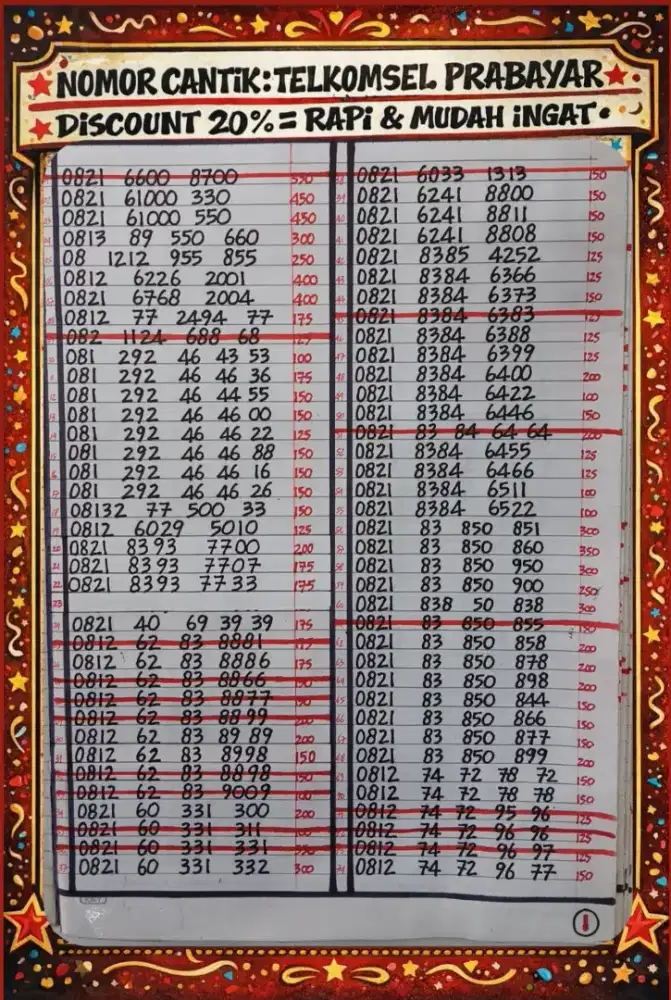 NOMOR CANTiK: TELKOMSEL PRABAYAR
DiSCOUNT 20% = RAPi & MUDAH iNGAT
0821 6600 8700
0821 61000 330 450
0821 61000 550 450
0813 89 550 660 300
08 1212 955 855 250
0812 6226 2001 400
0821 6768 2004 400
0812 77 2494 77 175
082 1124 688 68
081 292 46 43 53 100
081 292 46 46 36 175
081 292 46 44 55 150
081 292 46 46 00 150
081 292 46 46 22 125
081 292 46 46 88 150
081 292 46 46 16 150
081 292 46 46 26 150
08132 77 500 33 150
0812 6029 5010 125
0821 8393 7700 200
0821 8393 7707 175
22 0821 8393 7733 175
23
0821 40 69 39 39 175
0812 62 83 8881 175
0812 62 83 8886 175
0812 62 83 8866
0812 62 83 8877
0812 62 83 8899
0812 62 83 89 89 200
0812 62 83 8998 150
0812 62 83 8898 150
0812 62 83 9009
0821 60 331 300 200
0821 60 331 311
0821 60 331 331
0821 60 331 332 300
0821 6033 1313 150
0821 6241 8800 150
0821 6241 8811 150
0821 6241 8808 150
0821 8385 4252 125
0821 8384 6366 125
0821 8384 6373 150
0821 8384 6383
0821 8384 6388 125
0821 8384 6399 125
0821 8384 6400 200
0821 8384 6422 100
0821 8384 6446 150
0821 83 84 64 64 200
0821 8384 6455 125
0821 8384 6466 125
0821 8384 6511 100
0821 8384 6522 100
0821 83 850 851 300
0821 83 850 860 350
0821 83 850 950 300
0821 83 850 900 250
0821 838 50 838 300
0821 83 850 855
0821 83 850 858 200
0821 83 850 878 200
0821 83 850 898 200
0821 83 850 844 150
0821 83 850 866 200
0821 83 850 877 150
0821 83 850 899 200
0812 74 72 78 72 150
0812 74 72 78 78 150
0812 74 72 95 96 125
0812 74 72 96 96 125
0812 74 72 96 97 125
0812 74 72 96 77 150